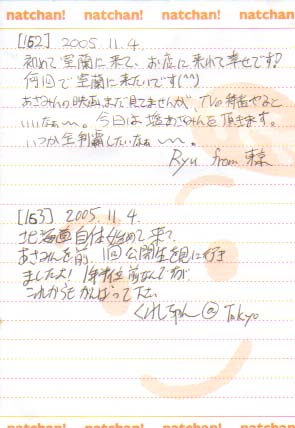 natchan! natchan! natchan! natchan!
[152] 2005.11.4.
初めて室蘭に来て、お店に来れて幸せです!
何回でも室蘭に来たいです(^^)
あさみんの映画まだ見てませんが、TVの特番やると
いいなぁ〜。今回は塩あさみんを頂きます。
いつか全制覇したいなぁ〜。
Ryu from 東京
[153] 2005.11.4.
北海道自体始めて来て
あさみんを前、1回公開生を見に行き
ましたよ! 1年半位前なんですが、
これからもがんばって下さい
くれちゃん@Tokyo
natchan! natchan! natchan! natchan!